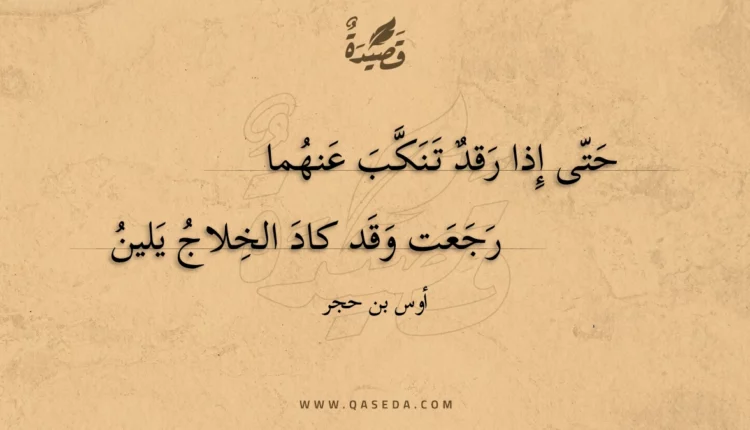 قَصِيدَةٌ
حَتّى إِذا رَقدٌ تَنَكَّبَ عَنهُما
رَجَعَت وَقَد كادَ الخِلاجُ يَلينُ
أوس بن حجر
WWW.QASEDA.COM